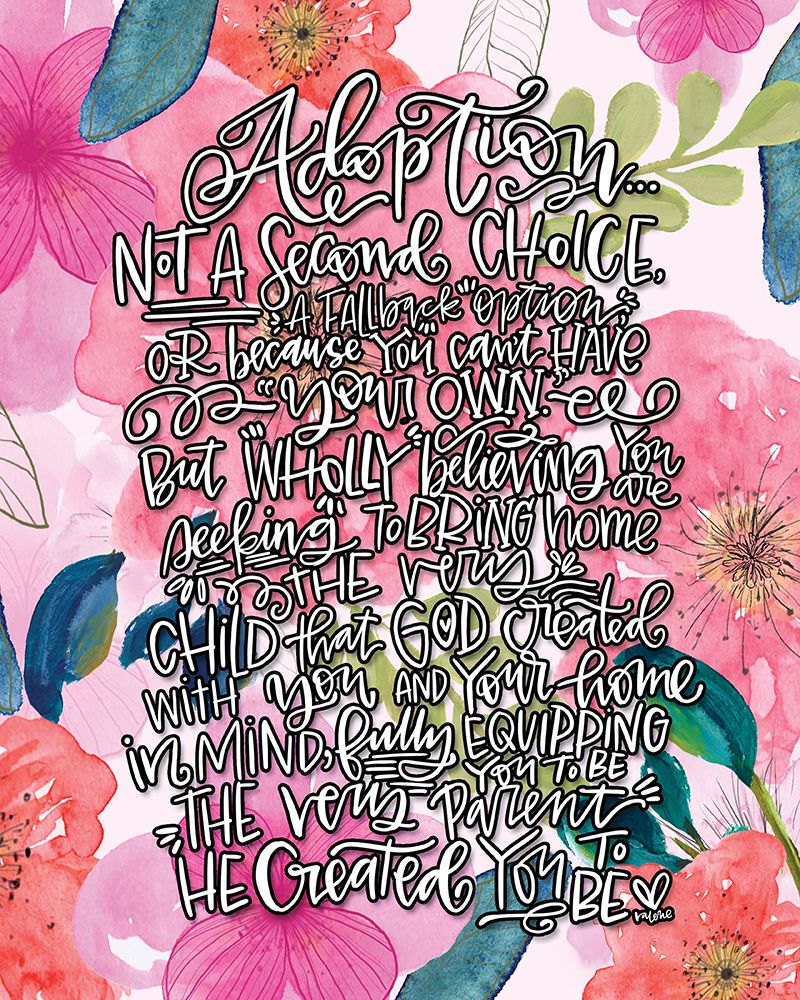 Adoption...
NOT A Second CHOICE,
A FALLback "option",
OR because YOU can't HAVE
"your OWN."
But "WHOLLY" believing You are
seeking TO BRING home
THE very
CHILD that GOD created
WITH you AND your home
in MIND, fully EQUIPPING
YOU TO BE
THE very parent
HE Created You TO BE